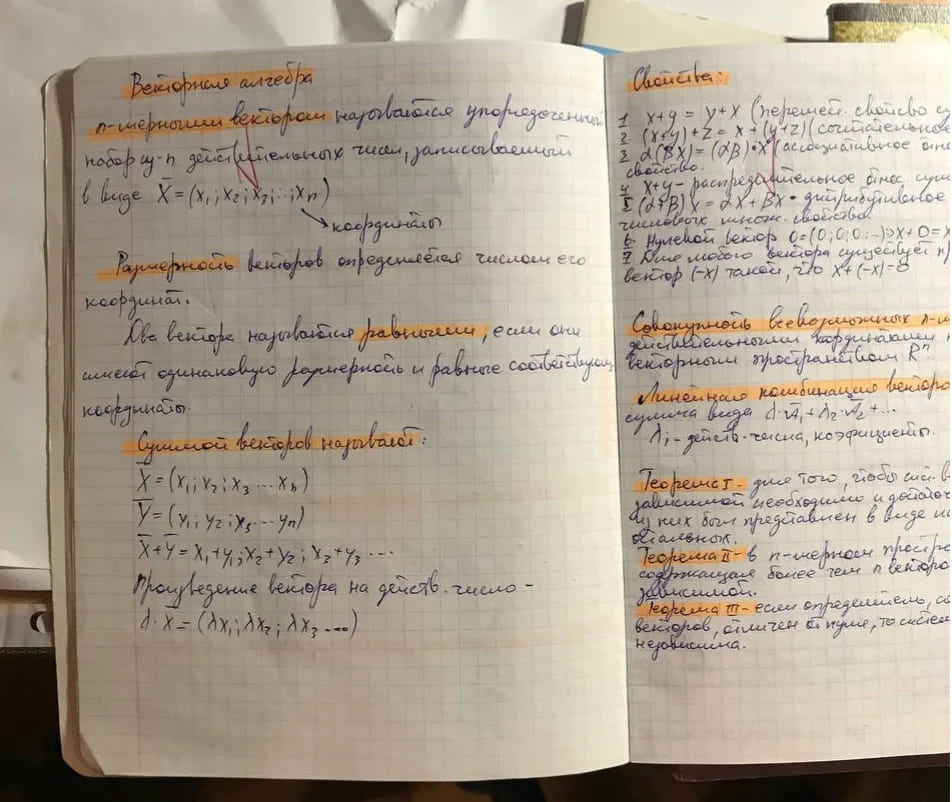 Векторная алгебра
n-мерными вектором называются упорядоченный
набор из n действительных чисел, записываемый
в виде X̅ = (x₁; x₂; x₃; ...; xn)
координаты
Размерность векторов определяется числом его
координат.
Два вектора называются равными, если они
имеют одинаковую размерность и равные соответствующ
координаты.
Суммой векторов называют:
X̅ = (x₁; x₂; x₃ ... xn)
Y̅ = (y₁; y₂; y₃ ... yn)
X̅+Y̅ = x₁+y₁; x₂+y₂; x₃+y₃ ...
Произведение вектора на действ. число -
λ · X̅ = (λx₁; λx₂; λx₃ ...)
Свойства:
1 x+y = y+x (перемест. свойство
2 (x+y)+z = x+(y+z) (сочетательное
3 α(βx) = (αβ)·x (ассоциативное
свойство.
4 x+y - распределительное относ. сум
5 (α+β)x = αx + βx · дистрибутивное
числовых множ. свойство.
6 Нулевой вектор 0=(0;0;0...) x+0=x
7 Для любого вектора существует пр
вектор (-x) такой, что x+(-x)=0
Совокупность всевозможных n-м
действительными координатами н
векторным пространством Rⁿ
Линейная комбинация векторо
сумма вида λ·A̅₁+λ₂·A̅₂+...
λi - действ. числа, коэфициенты.
Теорема I - для того, чтобы сис. в
зависимой необходимо и достато
из них был представлен в виде
остальных.
Теорема II - в n-мерном простра
содержащая более чем n векторо
зависимой.
Теорема III - если определитель, со
векторов, отличен от нуля, то систем
независима.